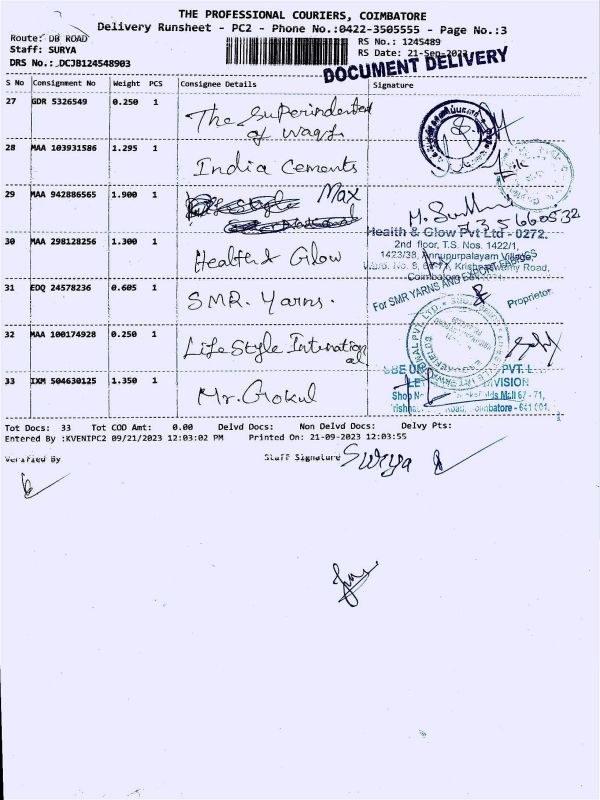 THE PROFESSIONAL COURIERS, COIMBATORE
Delivery Runsheet - PC2 - Phone No.:0422-3505555 - Page No.:3
Route: DB ROAD
Staff: SURYA
DRS No.: DCJB124548903
RS No.: 1245489
RS Date: 21-Sep-2023
DOCUMENT DELIVERY
S No Consignment No Weight PCS Consignee Details Signature
27 GDR 5326549 0.250 1 The Superindented
of waqf
28 MAA 103931586 1.295 1 India Cements
29 MAA 942886565 1.900 1 Max
30 MAA 298128256 1.300 1 Health & Glow
Health & Glow Pvt Ltd - 0272.
2nd floor, T.S. Nos. 1422/1,
1423/38, Annupurpalayam Village,
Road,
31 EDQ 24578236 0.605 1 SMR. Yarns.
For SMR YARNS AND EXPORT FABRICS
Proprietor
32 MAA 100174928 0.250 1 Life Style Internation
al
33 IXM 504630125 1.350 1 Mr. Gokul
PVT. L
VISION
Shop 67 - 71,
Road, Coimbatore - 641 001.
Tot Docs: 33 Tot COD Amt: 0.00 Delvd Docs: Non Delvd Docs: Delvy Pts:
Entered By :KVENIPC2 09/21/2023 12:03:02 PM Printed On: 21-09-2023 12:03:55
Verified By Staff Signature Surya